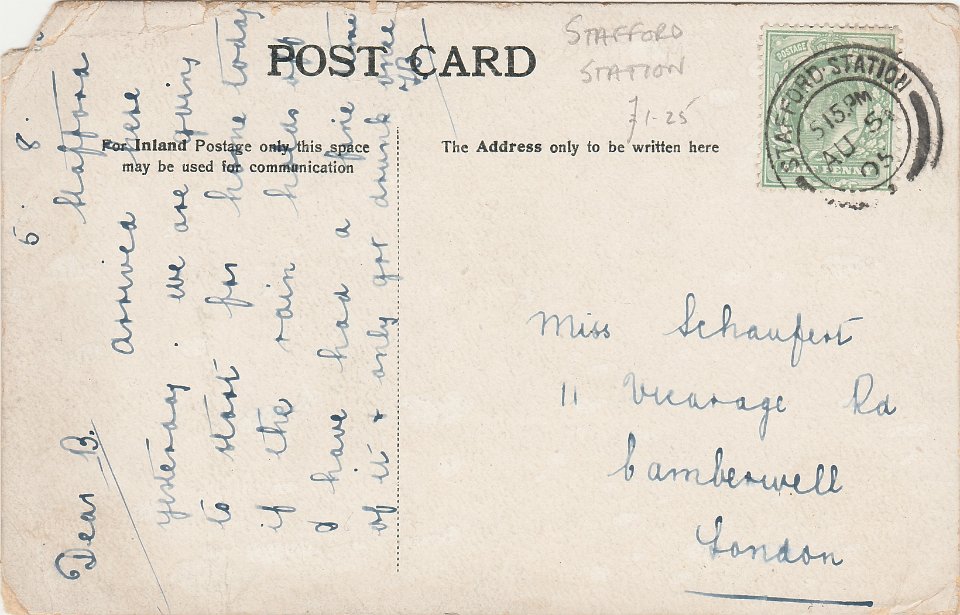 POST CARD
STAFFORD
STATION
£1-25
For Inland Postage only this space
may be used for communication
The Address only to be written here
POSTAGE
HALF PENNY
STAFFORD·STATION
5 15.PM
AU 5
05
5. 8.
Stafford
Dear B.
arrived here
yesterday we are going
to start for home today
if the rain holds off
I have had a fine time
of it & only got drunk once
Miss Schaufert
11 Vicarage Rd
Camberwell
London